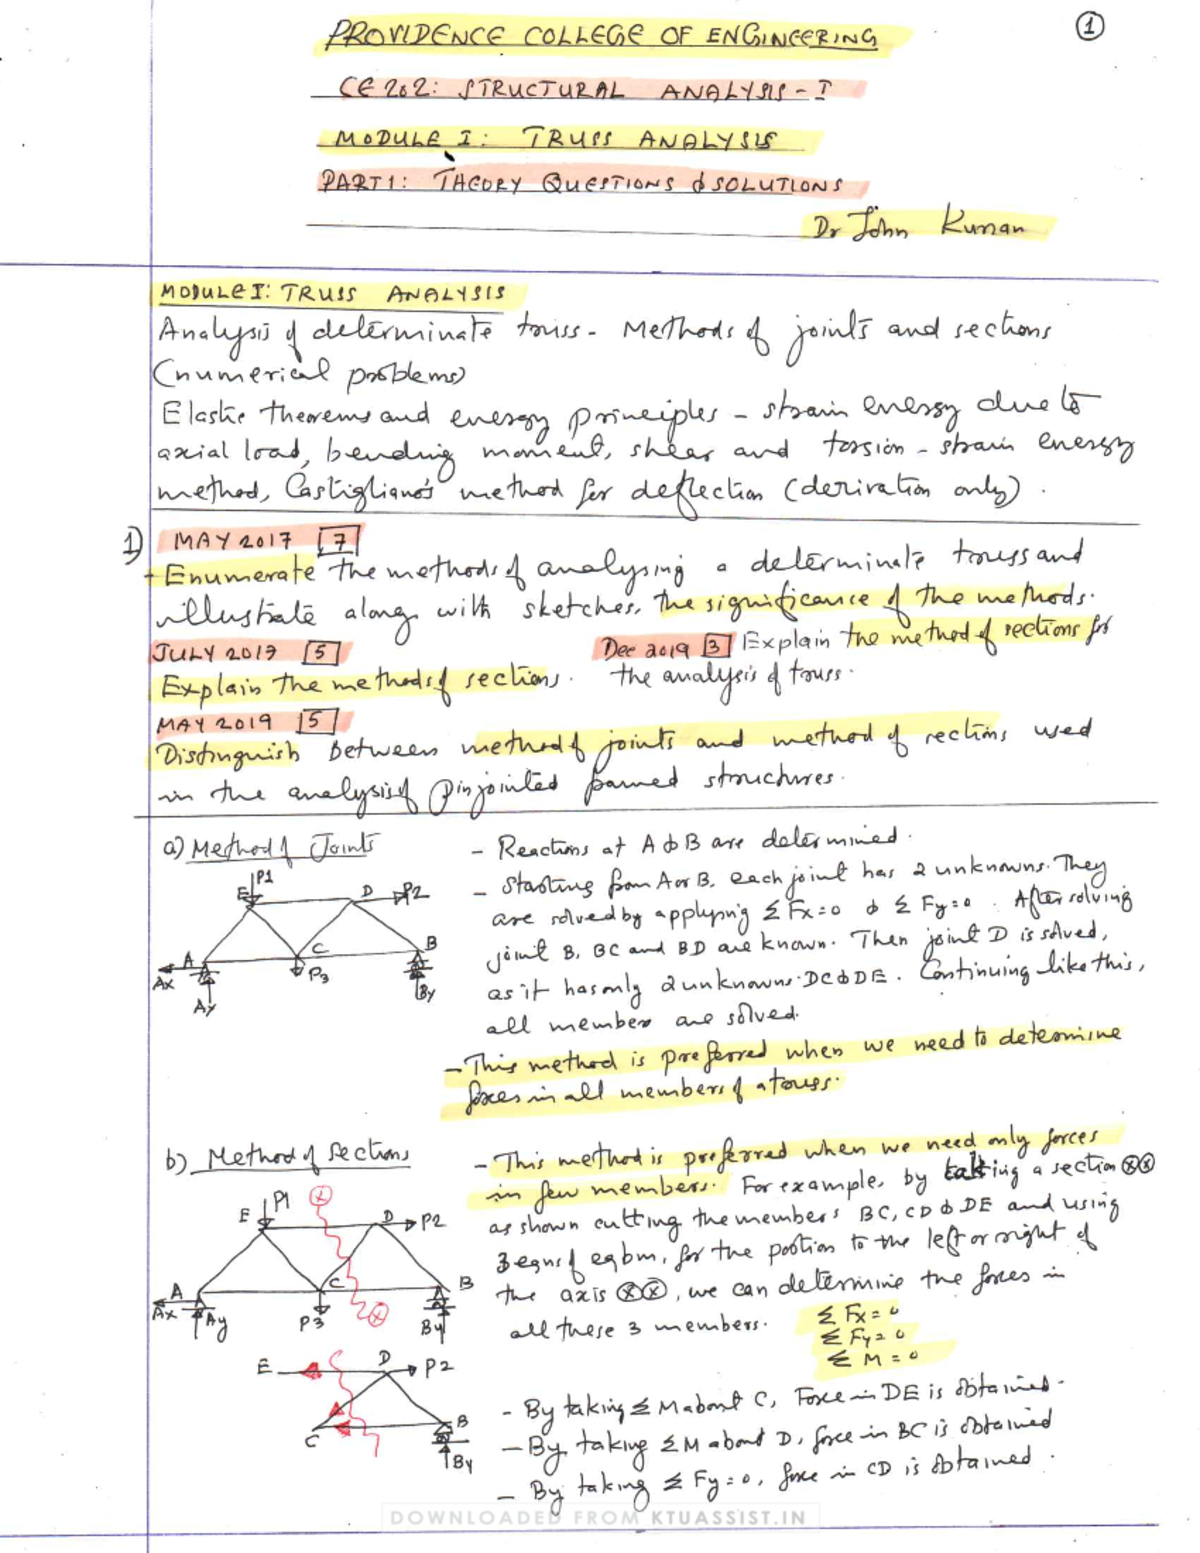 1
PROVIDENCE COLLEGE OF ENGINEERING
CE 202: STRUCTURAL ANALYSIS - I
MODULE I: TRUSS ANALYSIS
PART 1: THEORY QUESTIONS & SOLUTIONS
Dr John Kurian
MODULE I: TRUSS ANALYSIS
Analysis of determinate truss - Methods of joints and sections
(numerical problems)
Elastic theorems and energy principles - strain energy due to
axial load, bending moment, shear and torsion - strain energy
method, Castigliano's method for deflection (derivation only).
1) MAY 2017 7
Enumerate the methods of analysing a determinate truss and
illustrate along with sketches, the significance of the methods.
JULY 2017 5
Explain the methods of sections.
Dec 2019 3 Explain the method of sections for
the analysis of truss.
MAY 2019 5
Distinguish between method of joints and method of sections used
in the analysis of pin jointed framed structures.
a) Method of Joints
P1
E
D
P2
A
C
B
Ax
P3
Ay
By
- Reactions at A & B are determined.
- Starting from A or B, each joint has 2 unknowns. They
are solved by applying Σ Fx=0 & Σ Fy=0. After solving
joint B, BC and BD are known. Then joint D is solved,
as it has only 2 unknowns DC & DE. Continuing like this,
all members are solved.
- This method is preferred when we need to determine
forces in all members of a truss.
b) Method of Sections
P1
X
E
D
P2
A
C
B
Ax
Ay
P3
X
By
E
D
P2
C
B
By
- This method is preferred when we need only forces
in few members. For example, by taking a section XX
as shown cutting the members BC, CD & DE and using
3 eqns of eqbm, for the portion to the left or right of
the axis XX, we can determine the forces in
all these 3 members.
Σ Fx=0
Σ Fy=0
Σ M=0
- By taking Σ M about C, Force in DE is obtained.
- By taking Σ M about D, force in BC is obtained
- By taking Σ Fy=0, force in CD is obtained.
DOWNLOADED FROM KTUASSIST.IN